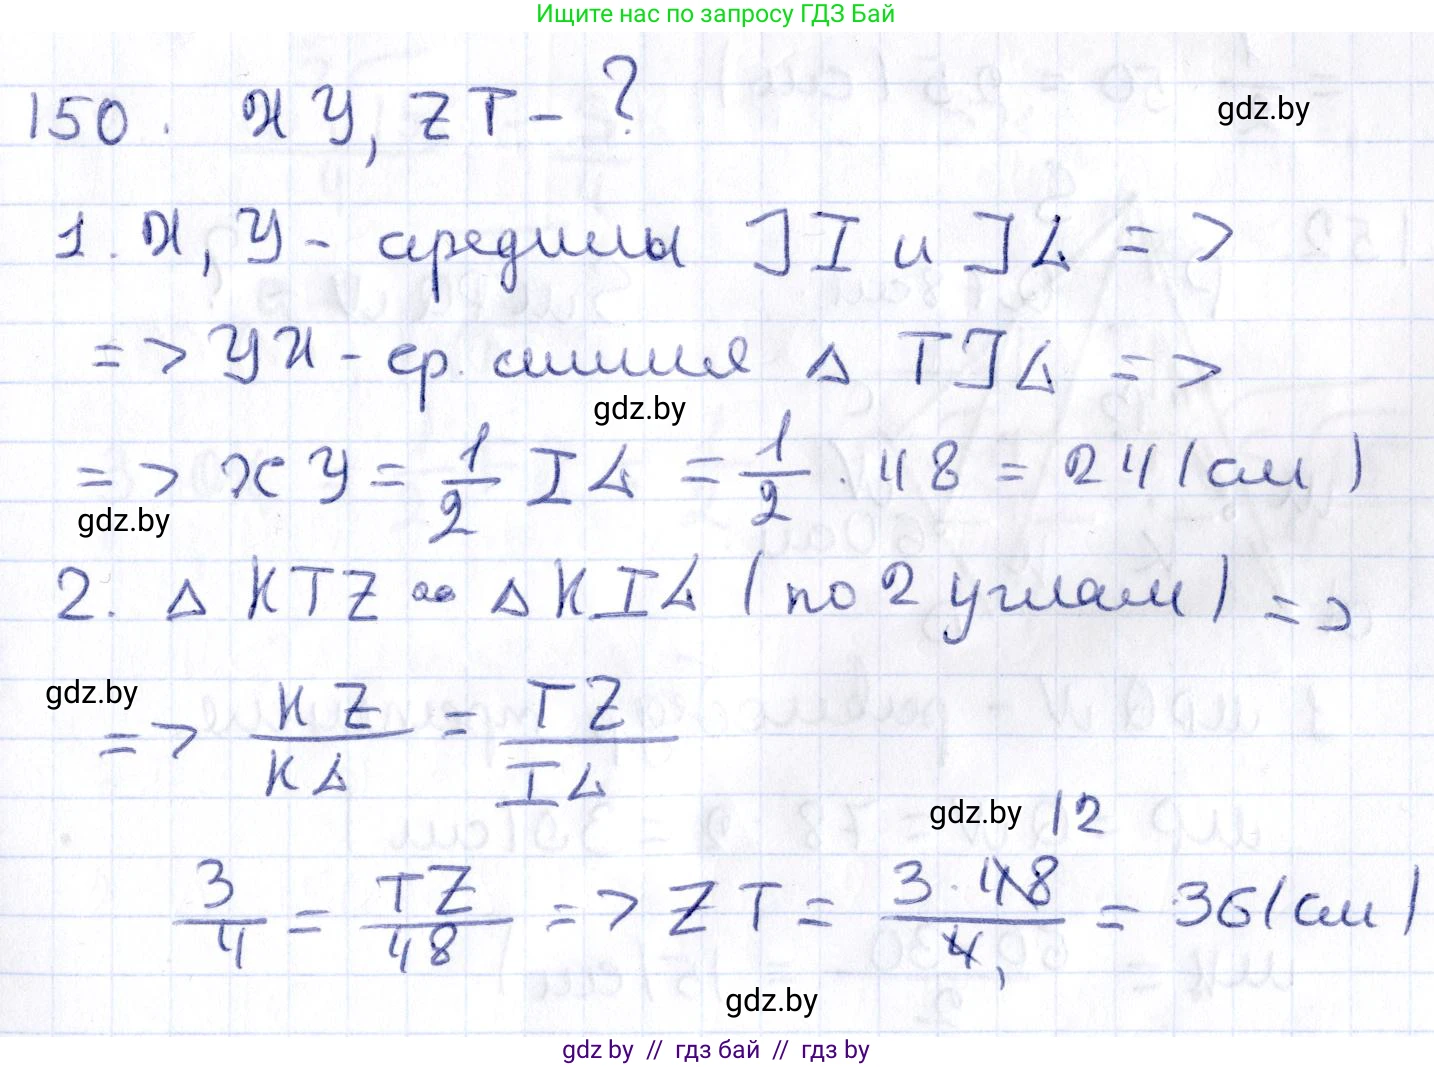 Ищите нас по запросу ГДЗ Бай
150. XY, ZT - ?
gdz.by
1. X, Y - середины JI и JL =>
=> YX - ср. линия Δ TJL =>
gdz.by
=> XY = 1/2 IL = 1/2 · 48 = 24 (см)
gdz.by
2. Δ KTZ ∾ Δ KIL (по 2 углам) =>
gdz.by
=> KZ/KL = TZ/IL
gdz.by 12
3/4 = TZ/48 => ZT = 3·48/4 = 36 (см)
gdz.by
gdz by // гдз бай // гдз by